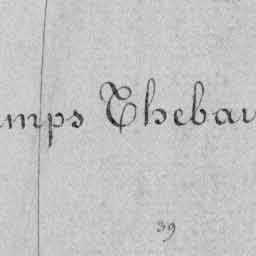 amps Thebau
39